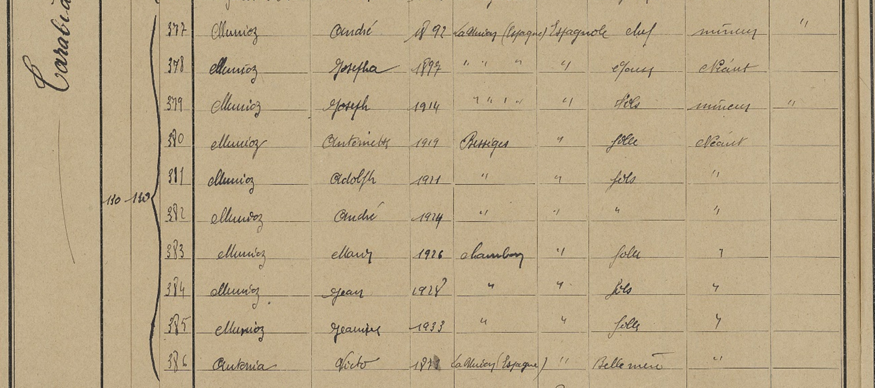 Carabia
110 - 110
377 Munioz André 1892 La Union (Espagne) Espagnole chef mineur "
378 Munioz Josepha 1897 " " " " épouse Néant
379 Munioz Joseph 1914 " " " " " fils mineur "
380 Munioz Antoinette 1919 Bessèges " fille Néant
381 Munioz Adolph 1921 " " fils "
382 Munioz André 1924 " " "
383 Munioz 1926 Chambon " fille "
384 Munioz Jean 1928 " " fils "
385 Munioz Jeanine 1933 " " fille "
386 Antonia Victo La Union (Espagne) " Belle mère "